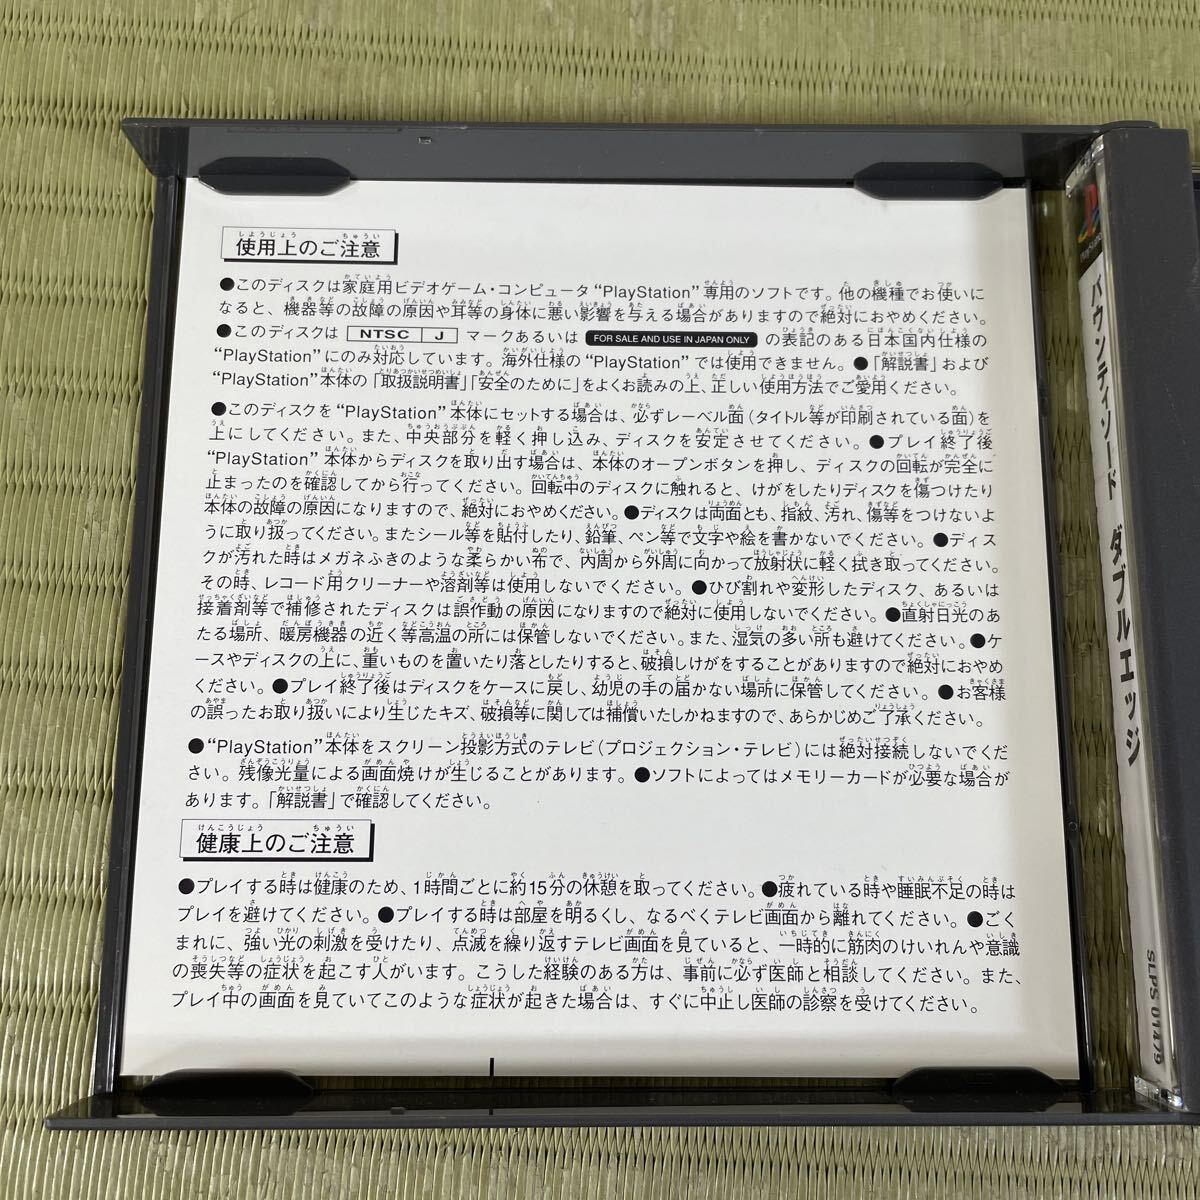 使用上のご注意
●このディスクは家庭用ビデオゲーム・コンピュータ“PlayStation”専用のソフトです。他の機種でお使いに
なると、機器等の故障の原因や耳等の身体に悪い影響を与える場合がありますので絶対におやめください。
●このディスクは NTSC J マークあるいは FOR SALE AND USE IN JAPAN ONLY の表記のある日本国内仕様の
“PlayStation”にのみ対応しています。海外仕様の“PlayStation”では使用できません。●「解説書」および
“PlayStation”本体の「取扱説明書」「安全のために」をよくお読みの上、正しい使用方法でご愛用ください。
●このディスクを“PlayStation”本体にセットする場合は、必ずレーベル面(タイトル等が印刷されている面)を
上にしてください。また、中央部分を軽く押し込み、ディスクを安定させてください。●プレイ終了後
“PlayStation”本体からディスクを取り出す場合は、本体のオープンボタンを押し、ディスクの回転が完全に
止まったのを確認してから行ってください。回転中のディスクに触れると、けがをしたりディスクを傷つけたり
本体の故障の原因になりますので、絶対におやめください。●ディスクは両面とも、指紋、汚れ、傷等をつけないよ
うに取り扱ってください。またシール等を貼付したり、鉛筆、ペン等で文字や絵を書かないでください。●ディス
クが汚れた時はメガネふきのような柔らかい布で、内周から外周に向かって放射状に軽く拭き取ってください。
その時、レコード用クリーナーや溶剤等は使用しないでください。●ひび割れや変形したディスク、あるいは
接着剤等で補修されたディスクは誤作動の原因になりますので絶対に使用しないでください。●直射日光のあ
たる場所、暖房機器の近く等高温の所には保管しないでください。また、湿気の多い所も避けてください。●ケ
ースやディスクの上に、重いものを置いたり落としたりすると、破損しけがをすることがありますので絶対におやめ
ください。●プレイ終了後はディスクをケースに戻し、幼児の手の届かない場所に保管してください。●お客様
の誤ったお取り扱いにより生じたキズ、破損等に関しては補償いたしかねますので、あらかじめご了承ください。
●“PlayStation”本体をスクリーン投影方式のテレビ(プロジェクション・テレビ)には絶対接続しないでくだ
さい。残像光量による画面焼けが生じることがあります。●ソフトによってはメモリーカードが必要な場合が
あります。「解説書」で確認してください。
健康上のご注意
●プレイする時は健康のため、1時間ごとに約15分の休憩を取ってください。●疲れている時や睡眠不足の時は
プレイを避けてください。●プレイする時は部屋を明るくし、なるべくテレビ画面から離れてください。●ごく
まれに、強い光の刺激を受けたり、点滅を繰り返すテレビ画面を見ていると、一時的に筋肉のけいれんや意識
の喪失等の症状を起こす人がいます。こうした経験のある方は、事前に必ず医師と相談してください。また、
プレイ中の画面を見ていてこのような症状が起きた場合は、すぐに中止し医師の診察を受けてください。
PlayStation
バウンティソード ダブルエッジ
SLPS 01479